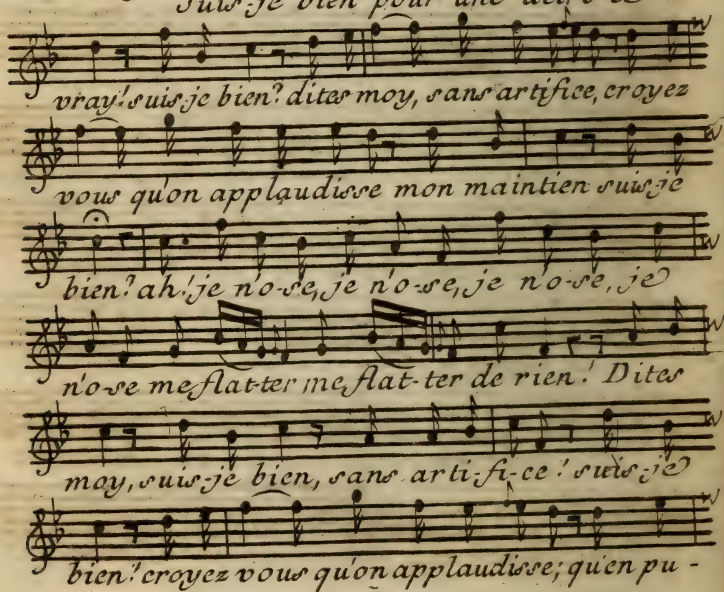 Suis-je bien pour une
vray! suis-je bien? dites moy, sans artifice, croyez
vous qu'on applaudisse mon maintien suis-je
bien? ah! je n'o-se, je n'o-se, je n'o-se, je
n'o-se me flat-ter me flat-ter de rien! Dites
moy, suis-je bien, sans arti-fi-ce! suis-je
bien! croyez vous qu'on applaudisse; qu'en pu-